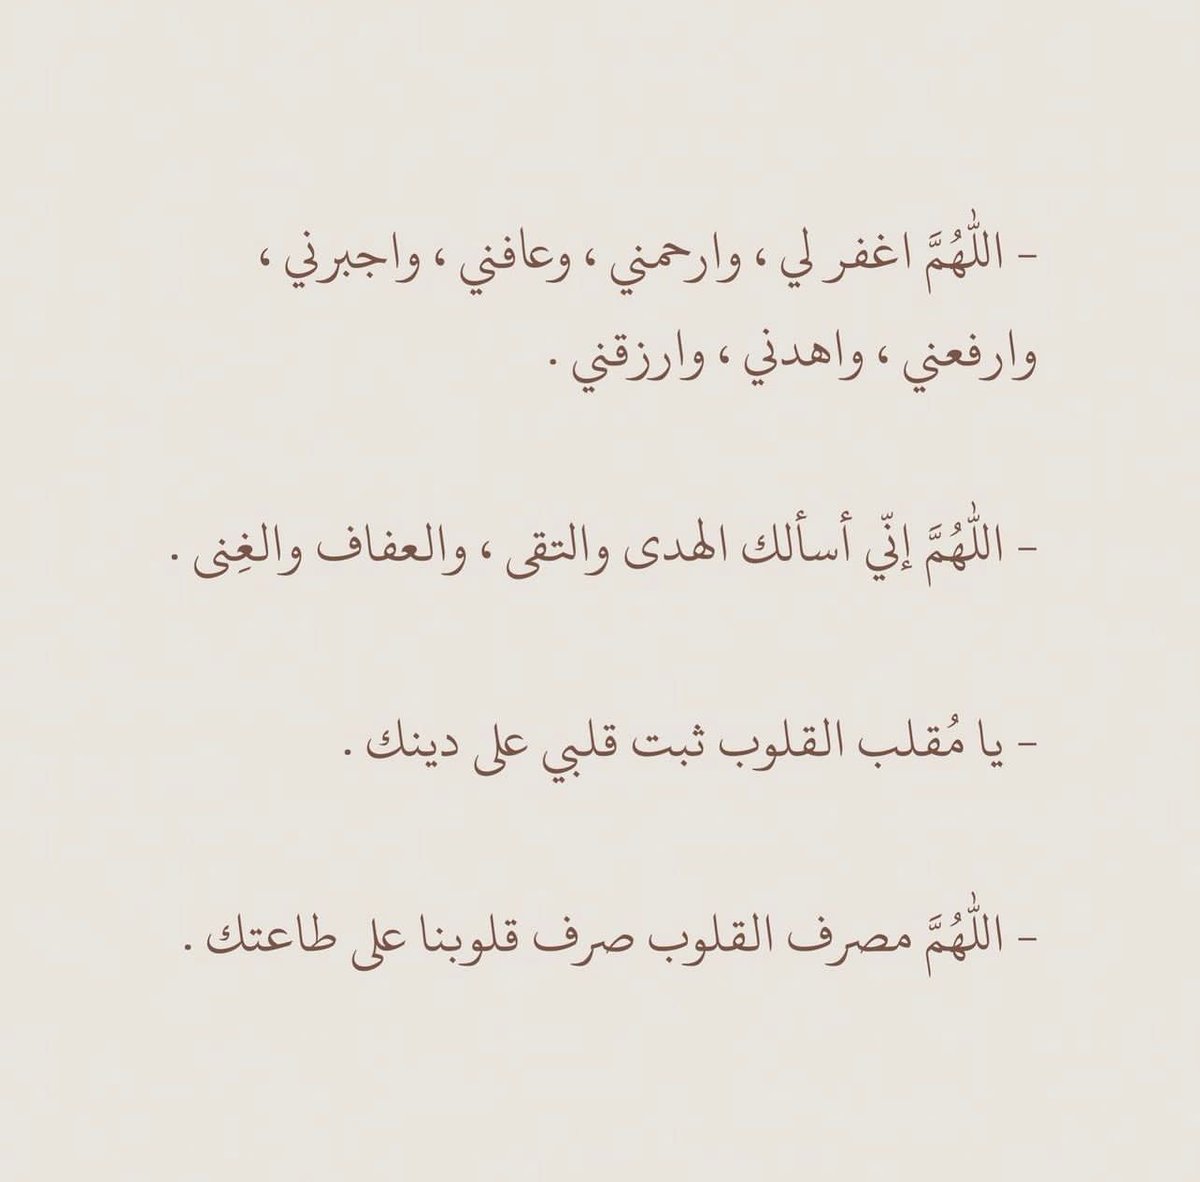 – اللّٰهُمَّ اغفر لي ، وارحمني ، وعافني ، واجبرني ،
وارفعني ، واهدني ، وارزقني .
– اللّٰهُمَّ إنّي أسألك الهدى والتقى ، والعفاف والغِنى .
– يا مُقلب القلوب ثبت قلبي على دينك .
– اللّٰهُمَّ مصرف القلوب صرف قلوبنا على طاعتك .